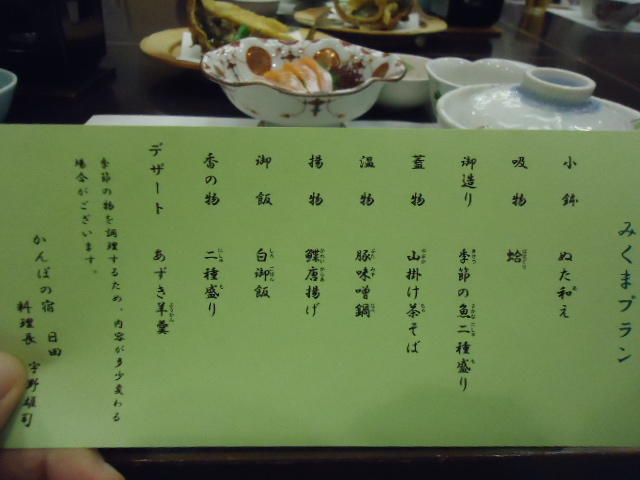 みくまプラン
小鉢 ぬた和え
吸物 蛤
御造り 季節の魚二種盛り
蓋物 山掛け茶そば
温物 豚味噌鍋
揚物 鰈唐揚げ
御飯 白御飯
香の物 二種盛り
デザート あずき羊羹
季節の物を調理するため、内容が多少変わる
場合がございます。
かんぽの宿 日田
料理長 宇野雄司